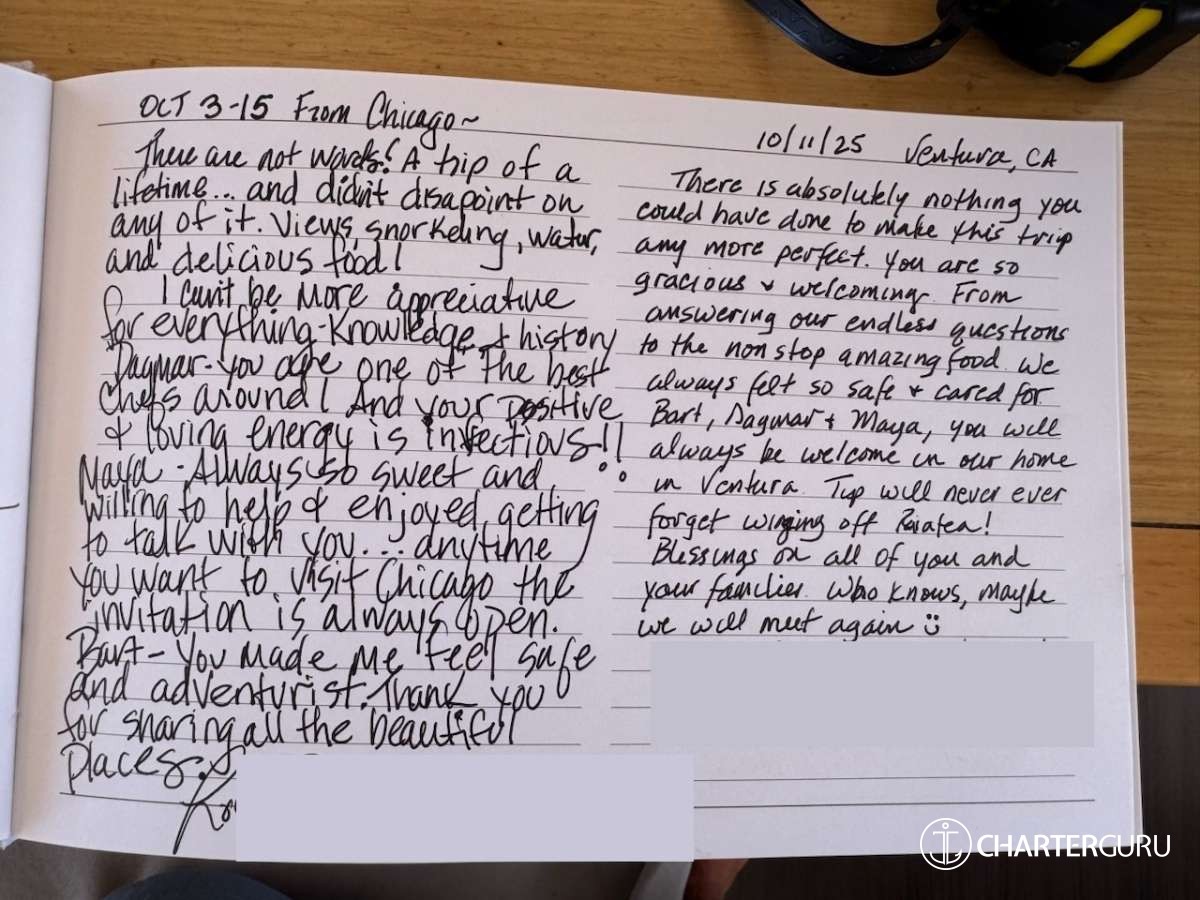 OCT 3-15 From Chicago~
There are not words! A trip of a
lifetime... and didn't disapoint on
any of it. Views, snorkeling, water,
and delicious food!
I can't be more appreciative
for everything - Knowledge & history
Dagmar - you are one of the best
Chefs around! And your positive
& loving energy is infectious!!
Maya - Always so sweet and
willing to help & enjoyed getting
to talk with you... anytime
you want to visit Chicago the
invitation is always open.
Bart - You made me feel safe
and adventurist. Thank you
for sharing all the beautiful
places.
10/11/25 Ventura, CA
There is absolutely nothing you
could have done to make this trip
any more perfect. You are so
gracious & welcoming. From
answering our endless questions
to the non stop amazing food. We
always felt so safe & cared for
Bart, Dagmar & Maya, you will
always be welcome in our home
in Ventura. will never ever
forget winging off Raiatea!
Blessings on all of you and
your families. Who knows, maybe
we will meet again
CHARTERGURU